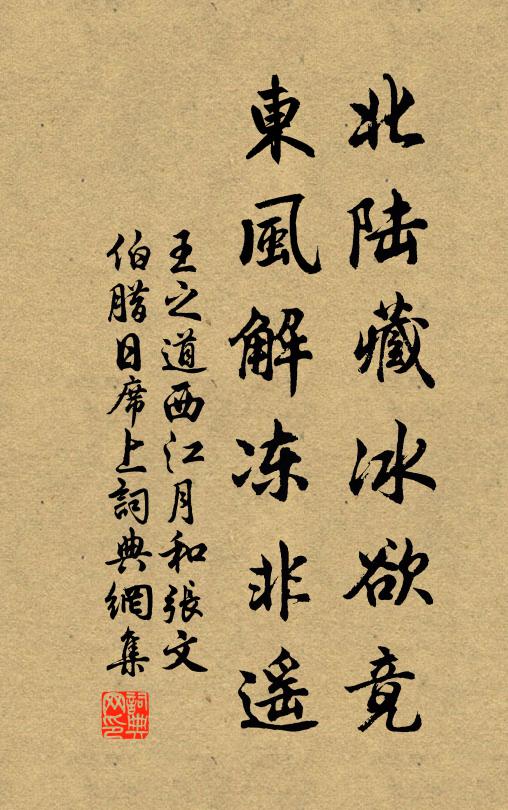 北陆藏冰欲竟
東風解冻非遥
王之道西江月和張文
伯腊日席上詞典網集
詞典
网印